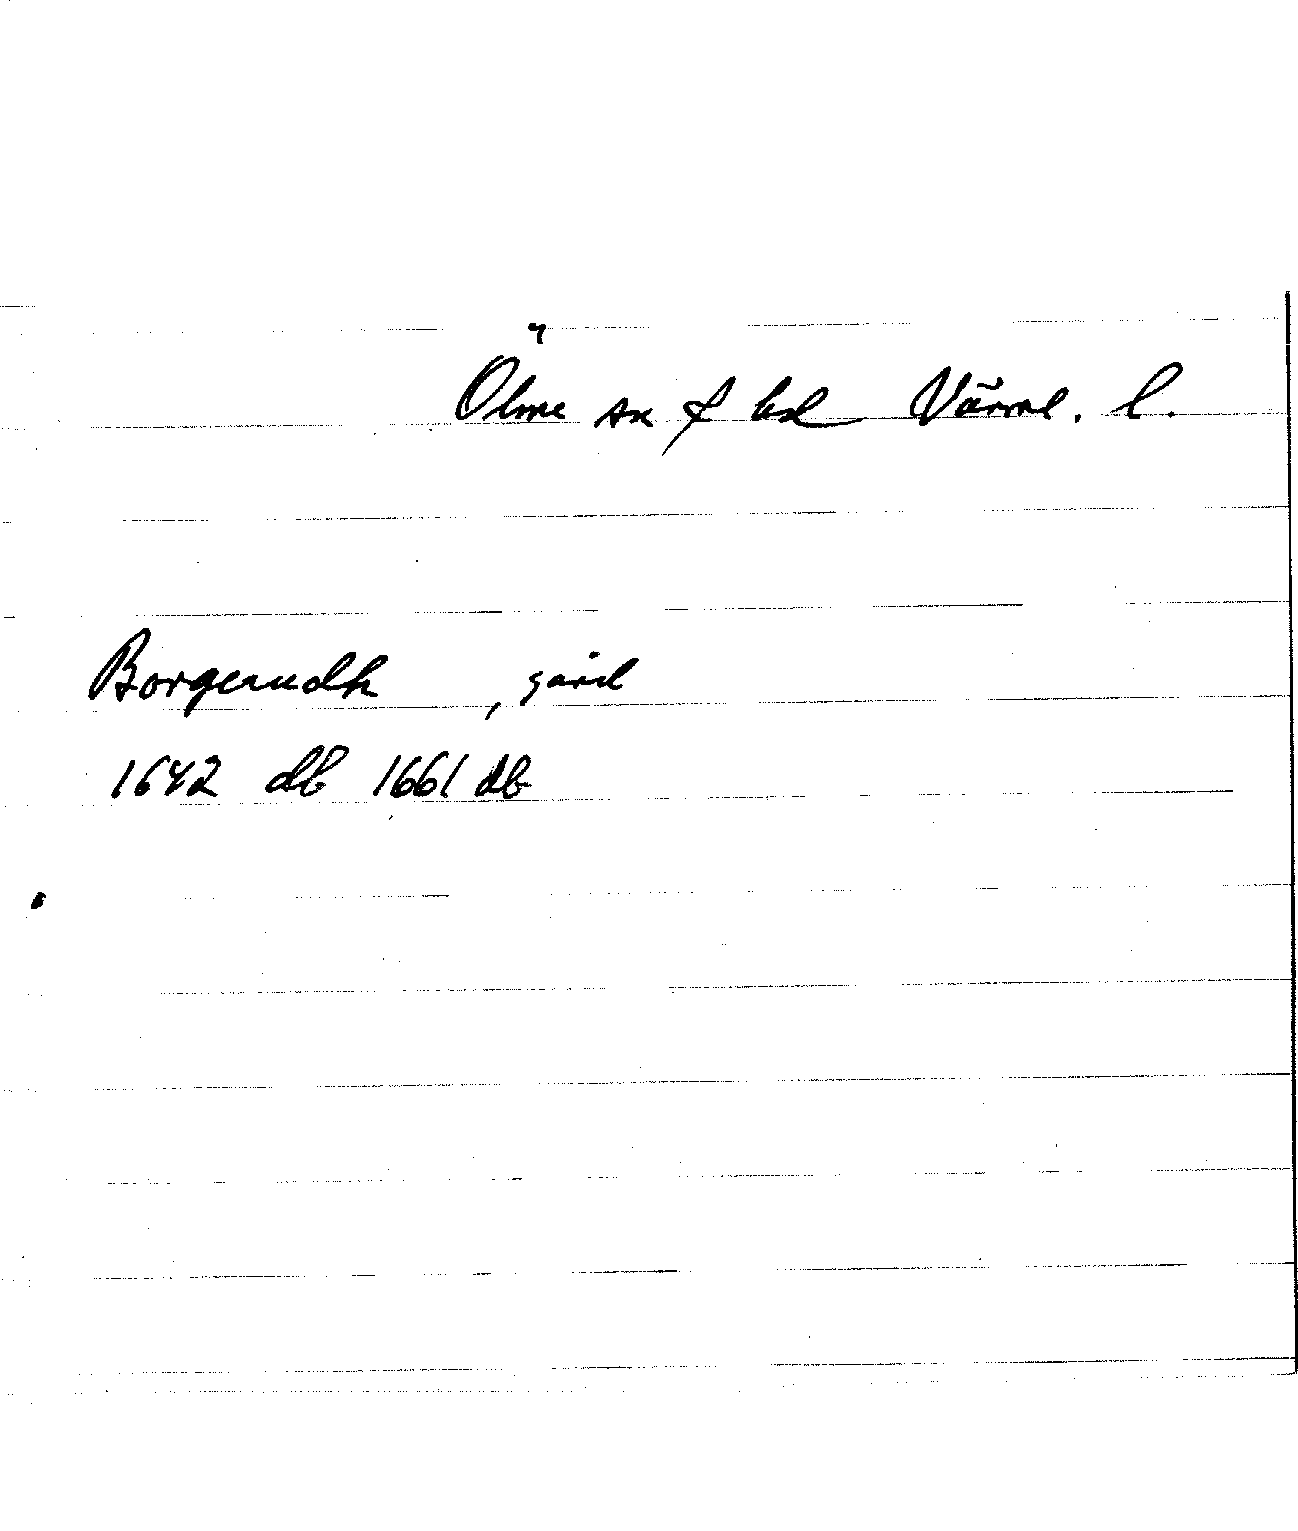 Ölme sn & hd Värml. l.
Borgerudh , gård
1642 db 1661 db